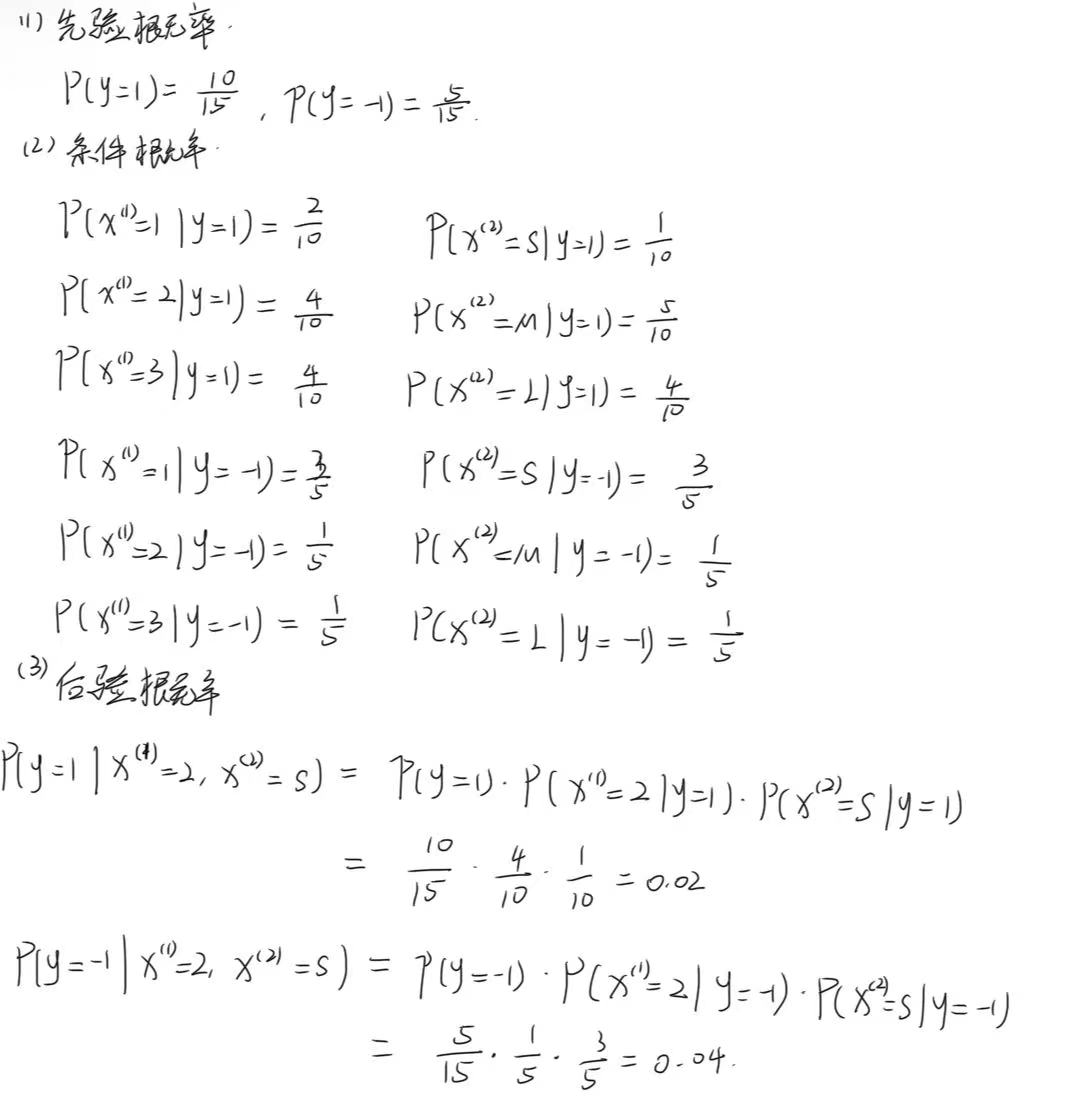 (1) 先验概率.
P(y=1)= 10/15 , P(y=-1)= 5/15.
(2) 条件概率.
P(x⁽¹⁾=1|y=1)= 2/10 P(x⁽²⁾=S|y=1)= 1/10
P(x⁽¹⁾=2|y=1)= 4/10 P(x⁽²⁾=M|y=1)= 5/10
P(x⁽¹⁾=3|y=1)= 4/10 P(x⁽²⁾=L|y=1)= 4/10
P(x⁽¹⁾=1|y=-1)= 3/5 P(x⁽²⁾=S|y=-1)= 3/5
P(x⁽¹⁾=2|y=-1)= 1/5 P(x⁽²⁾=M|y=-1)= 1/5
P(x⁽¹⁾=3|y=-1)= 1/5 P(x⁽²⁾=L|y=-1)= 1/5
(3) 后验概率
P(y=1|x⁽¹⁾=2, x⁽²⁾=S) = P(y=1)·P(x⁽¹⁾=2|y=1)·P(x⁽²⁾=S|y=1)
= 10/15 · 4/10 · 1/10 = 0.02
P(y=-1|x⁽¹⁾=2, x⁽²⁾=S) = P(y=-1)·P(x⁽¹⁾=2|y=-1)·P(x⁽²⁾=S|y=-1)
= 5/15 · 1/5 · 3/5 = 0.04.